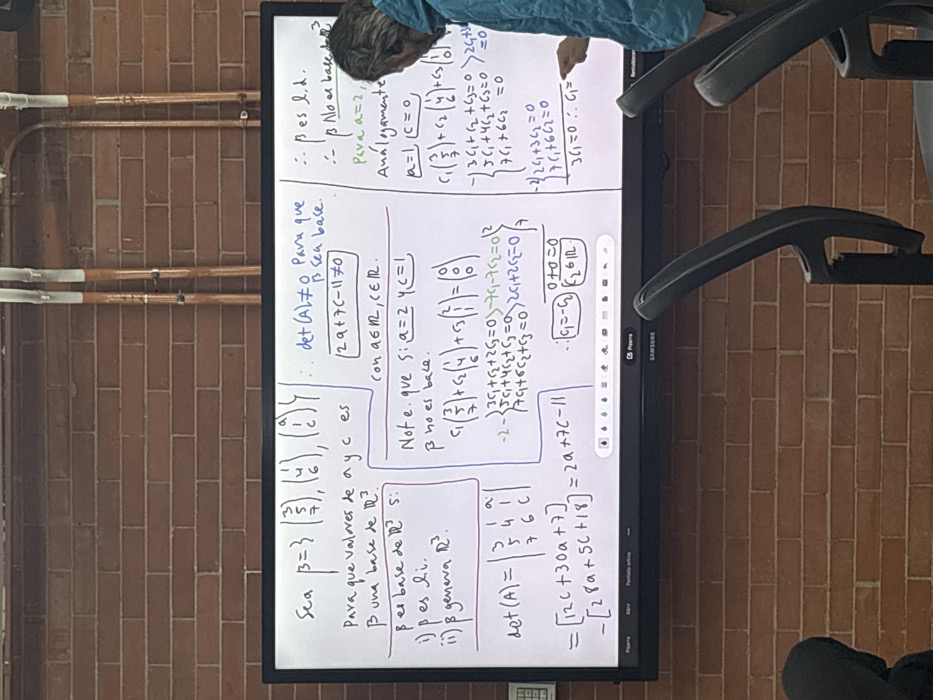 Sea β = { (3 5 7), (1 4 6), (a 1 c) }
Para que valores de a y c es
β una base de ℝ³.
β es base de ℝ³ si:
i) β es li.
ii) β genera ℝ³.
det(A) = | 3 1 a |
| 5 4 1 |
| 7 6 c |
= [12c + 30a + 7]
- [28a + 5c + 18] = 2a + 7c - 11
∴ det(A) ≠ 0 Para que
β sea base.
2a + 7c - 11 ≠ 0
con a ∈ ℝ, c ∈ ℝ.
Note que si a = 2 y c = 1
β no es base.
c₁(3 5 7) + c₂(1 4 6) + c₃(2 1 1) = (0 0 0)
3c₁ + c₂ + 2c₃ = 0
-2 - 5c₁ + 4c₂ + c₃ = 0 > -7c₁ - 7c₂ = 0 2
7c₁ + 6c₂ + c₃ = 0 > 2c₁ + 2c₂ = 0 7
0 + 0 = 0
∴ c₁ = -c₂ c₂ ∈ ℝ
∴ β es l.d.
∴ β No es base ℝ³
Para a = 2,
Análogamente
a = 1, c = 0
c₁(3 5 7) + c₂(1 4 6) + c₃(1 1 0)
- 3c₁ + c₂ + c₃ = 0 > 2c₁ + 3
5c₁ + 4c₂ + c₃ = 0 = 0
7c₁ + 6c₂ = 0
-2 { 2c₁ + 3c₂ = 0
7c₁ + 6c₂ = 0
3c₁ = 0 ∴ c₁ =
Pizarra
SAMSUNG